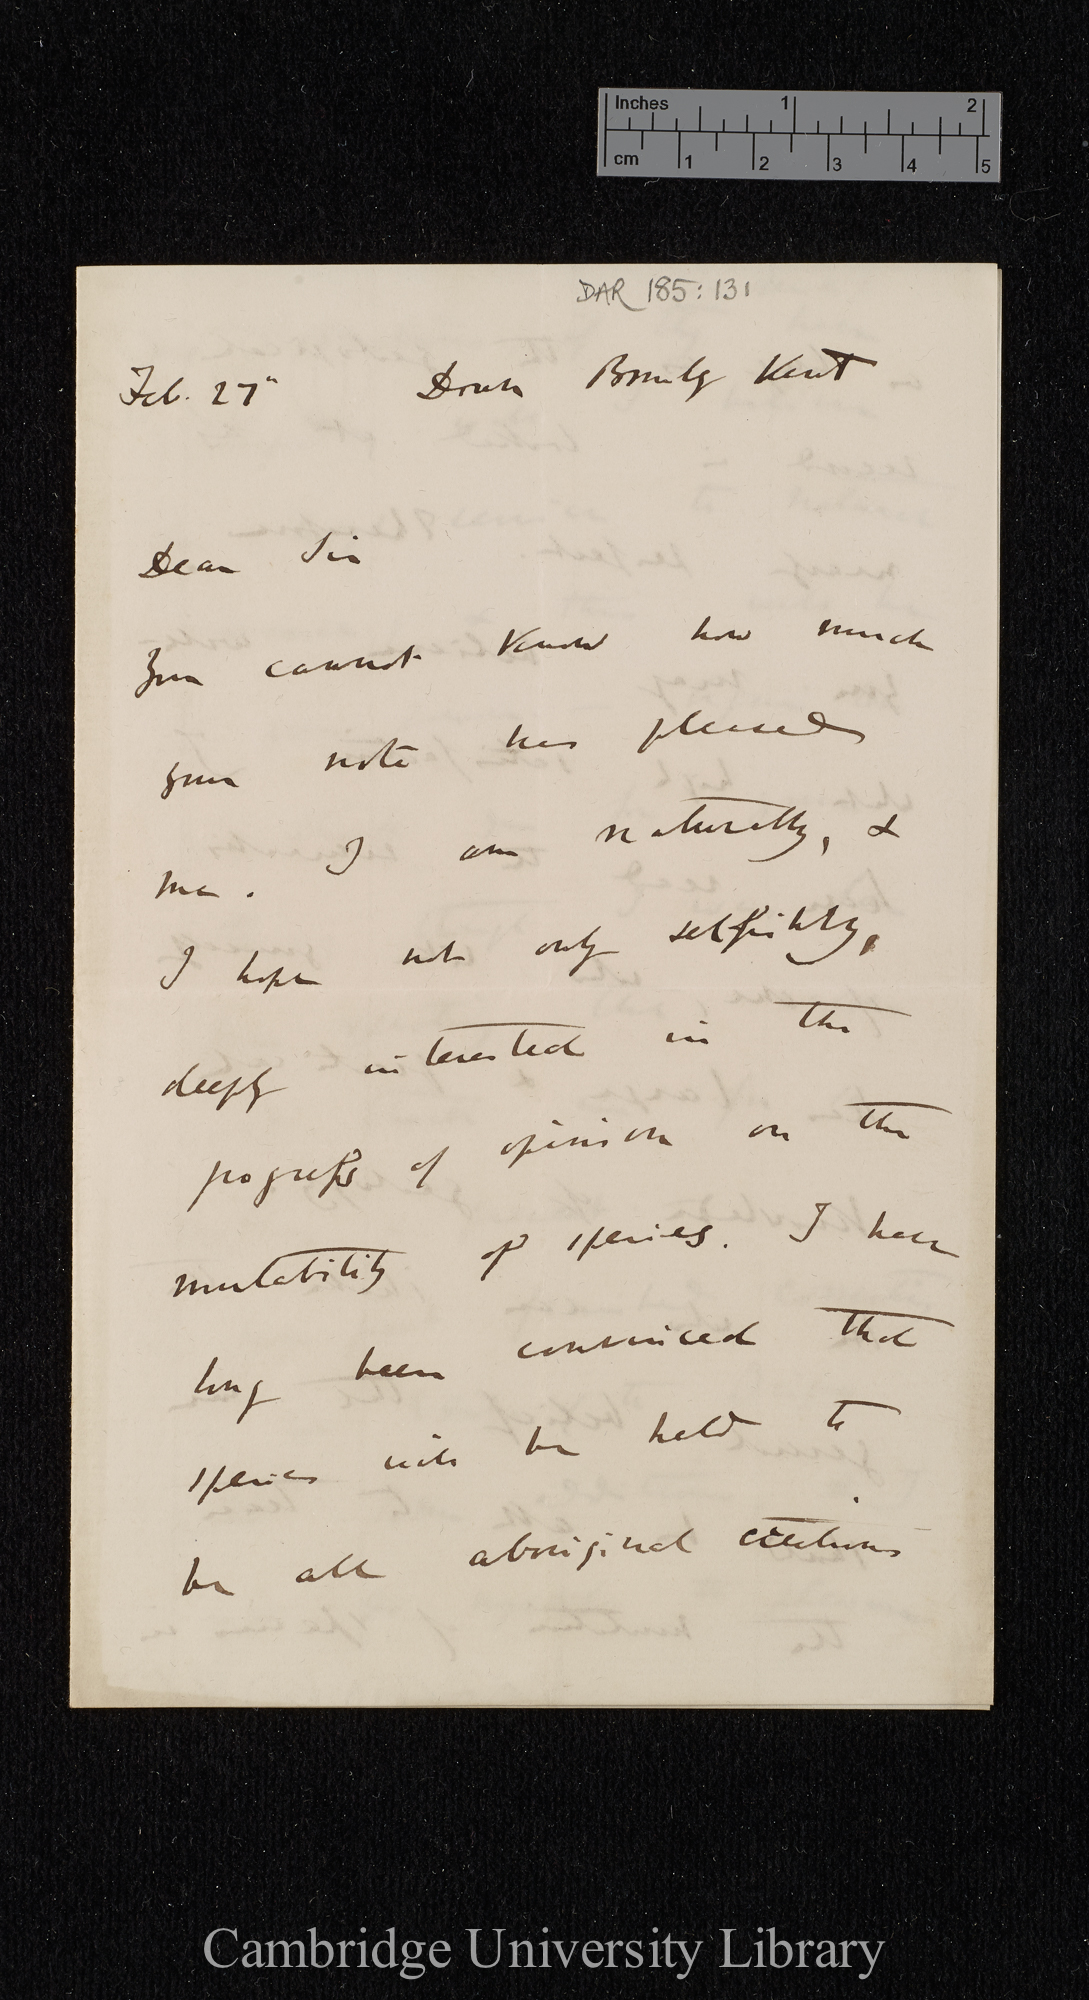 Inches 1 2
cm 1 2 3 4 5
DAR 185: 131
Feb. 27th Down Bromley Kent
Dear Sir
You cannot know how much
your note has pleased
me. I am naturally, &
I hope not only selfishly,
deeply interested in the
progress of opinion on the
mutability of species. I have
long been convinced that
species will be held to
be all aboriginal creations
Cambridge University Library